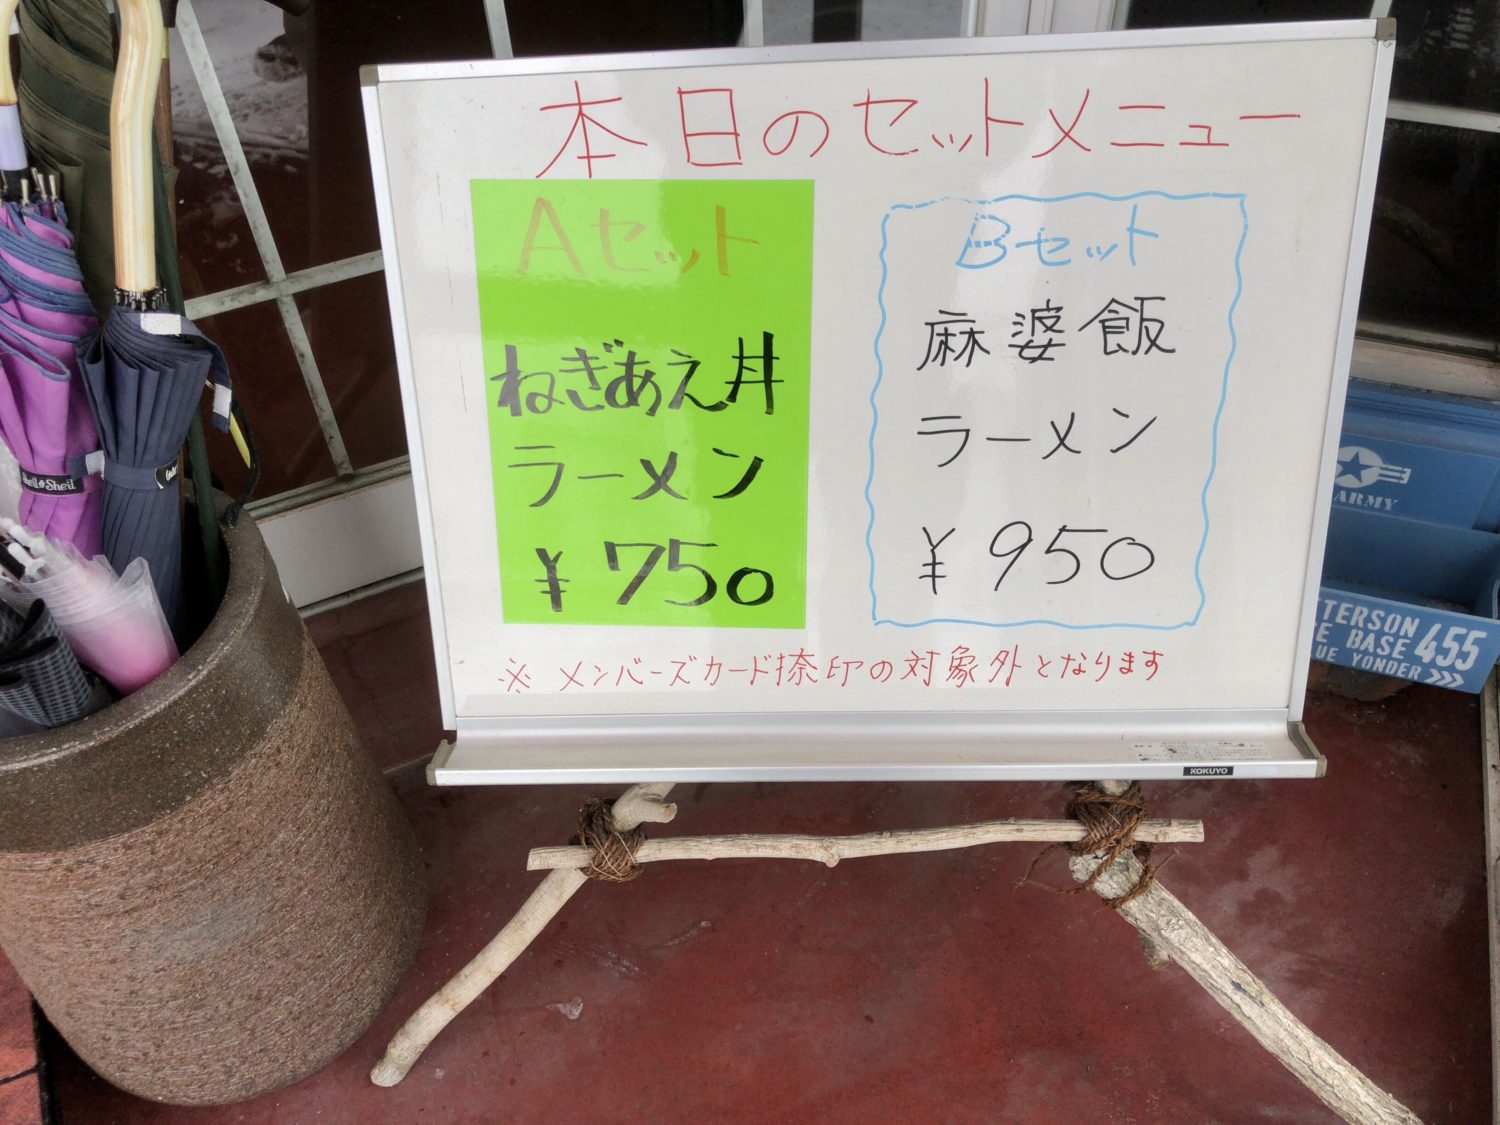 本日のセットメニュー
Aセット
ねぎあえ丼
ラーメン
¥750
Bセット
麻婆飯
ラーメン
¥950
※メンバーズカード捺印の対象外となります
KOKUYO
Sheil & Sheil
ARMY
TERSON
BASE 455
YONDER >>>